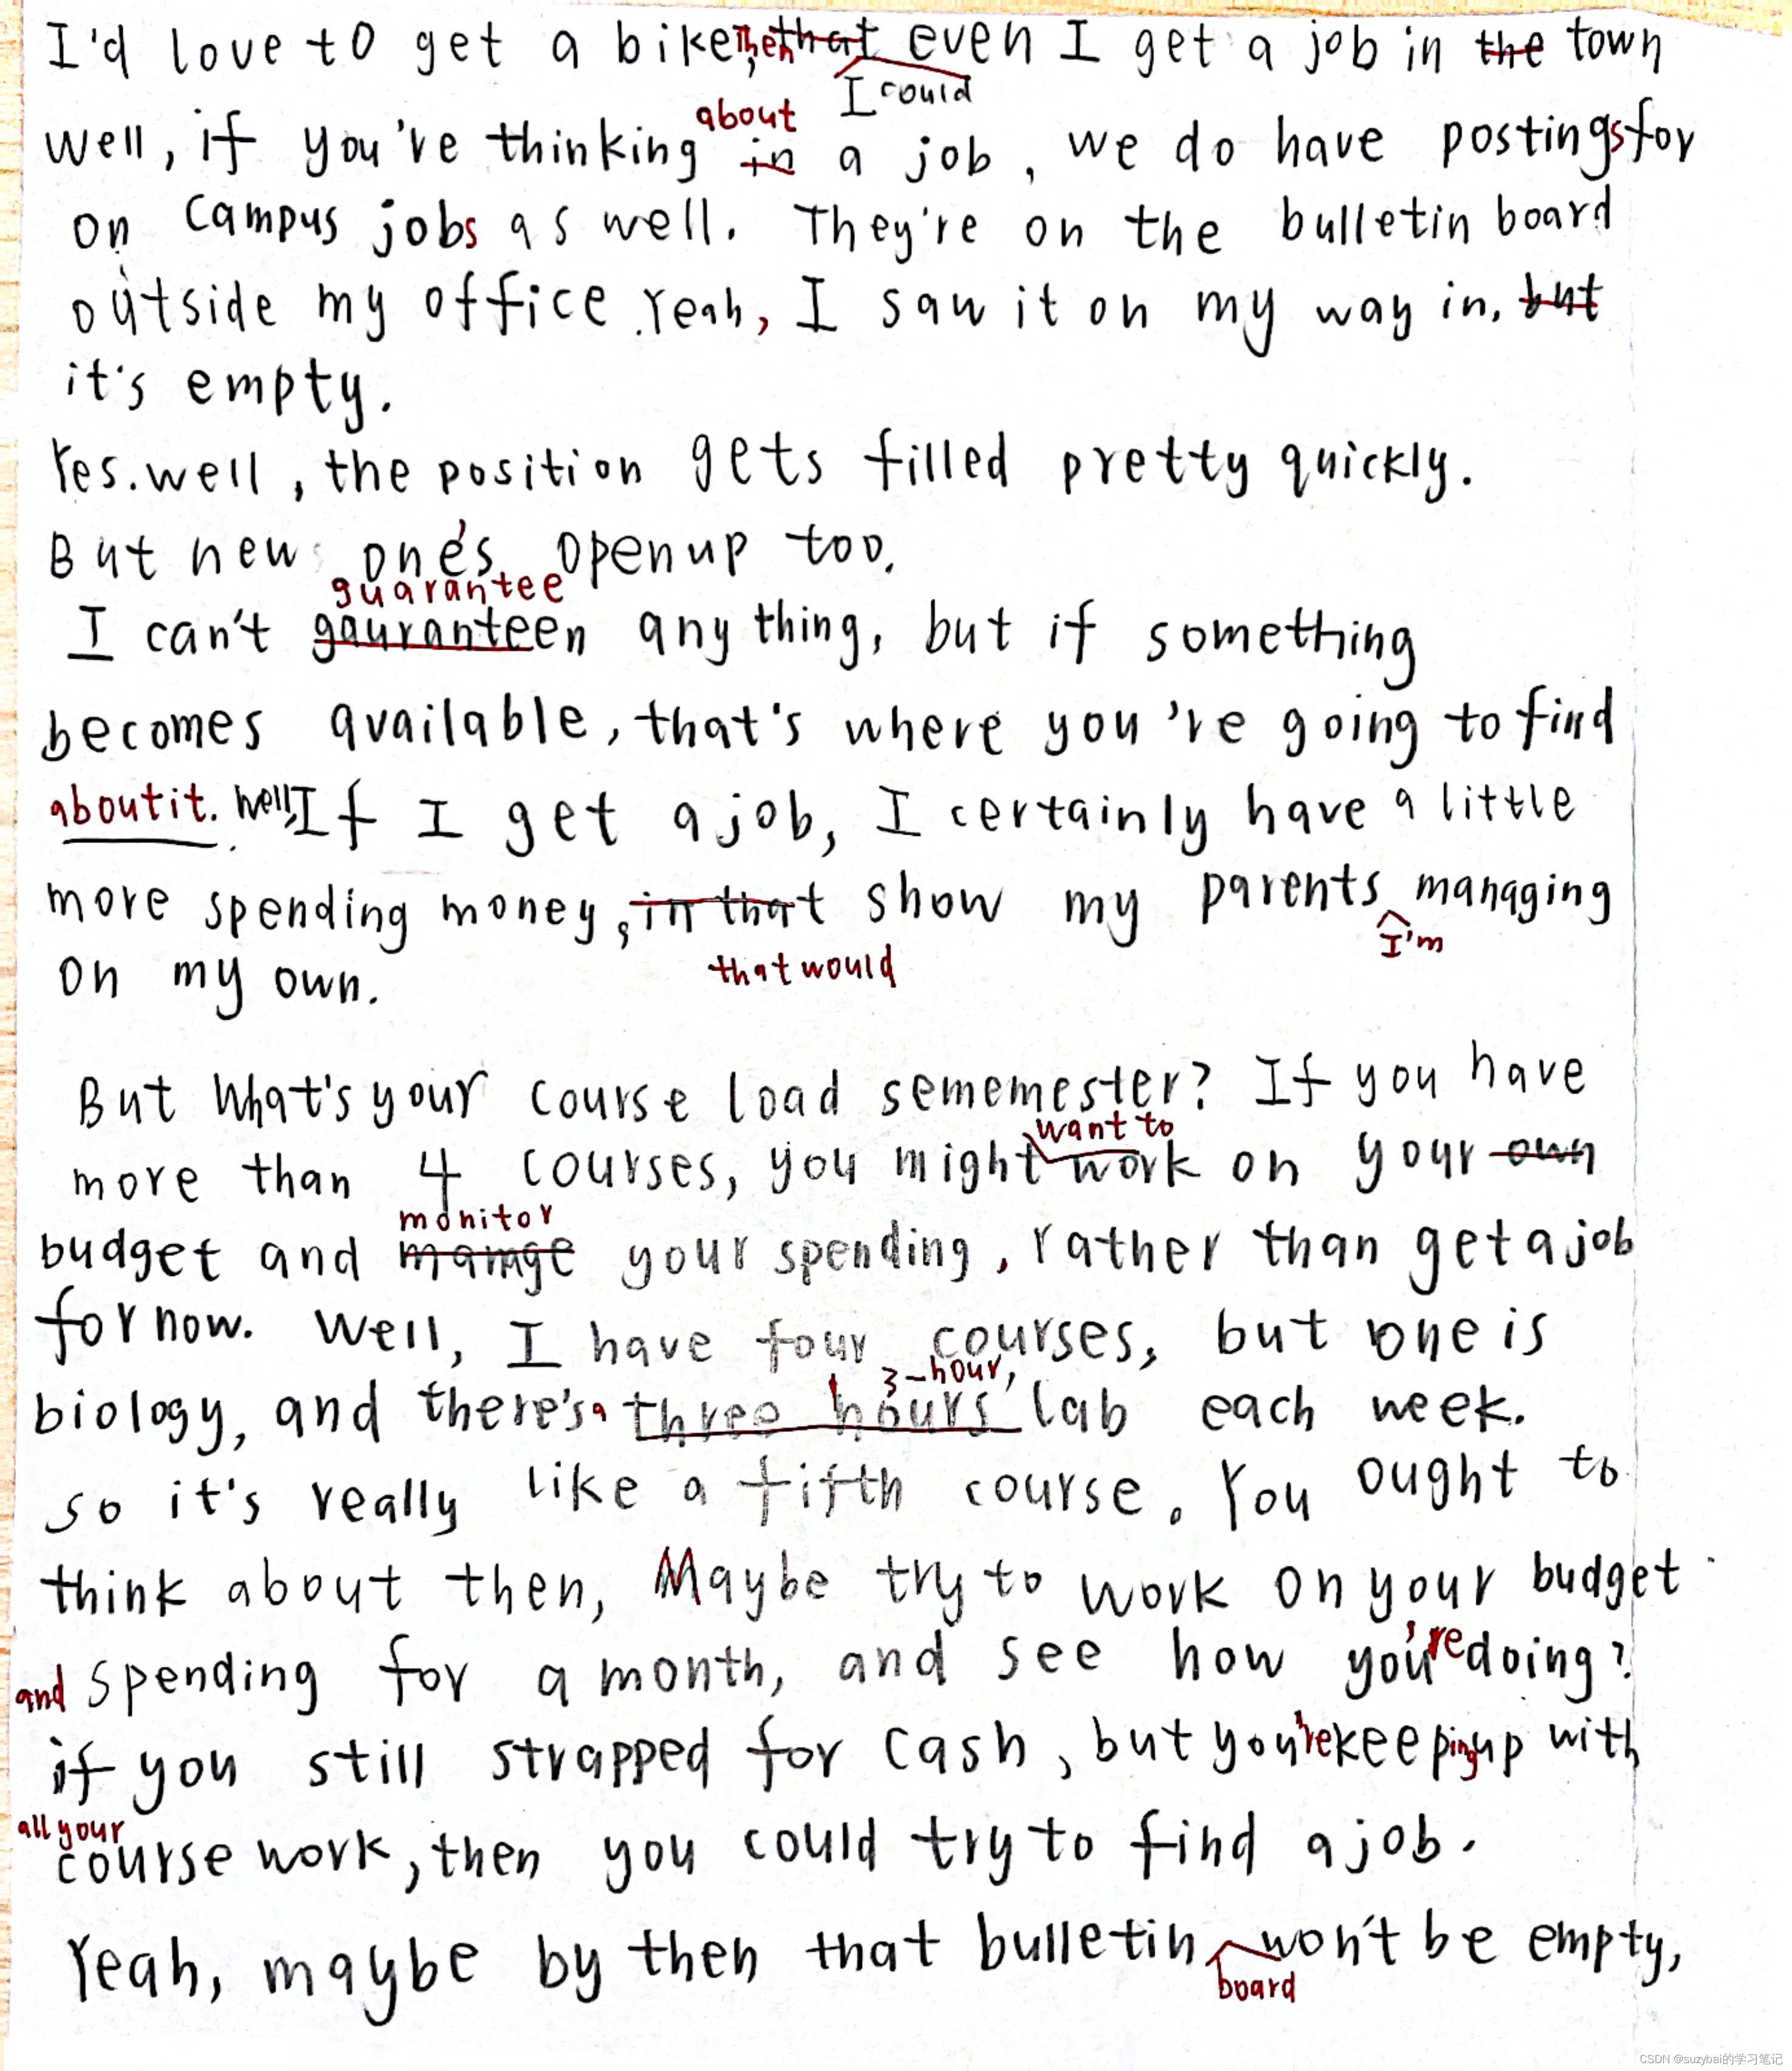 I'd love to get a bike, Then that even I get a job in the town
I could
about
well, if you're thinking in a job, we do have postings for
on campus jobs as well. They're on the bulletin board
outside my office. Yeah, I saw it on my way in. but
it's empty.
Yes. well, the position gets filled pretty quickly.
But new one's open up too.
guarantee
I can't gauranteen anything, but if something
becomes available, that's where you're going to find
about it. Well, If I get a job, I certainly have a little
more spending money, in that show my parents managing
I'm
that would
on my own.
But what's your course load sememester? If you have
want to
more than 4 courses, you might work on your own
monitor
budget and manage your spending, rather than get a job
for now. Well, I have four courses, but one is
3-hour,
biology, and there's a three hours lab each week.
so it's really like a fifth course. You ought to
think about then, Maybe try to work on your budget
and spending for a month, and see how you're doing?
if you still strapped for cash, but you're keeping up with
all your
course work, then you could try to find a job.
Yeah, maybe by then that bulletin won't be empty,
board
CSDN @suzybai的学习笔记